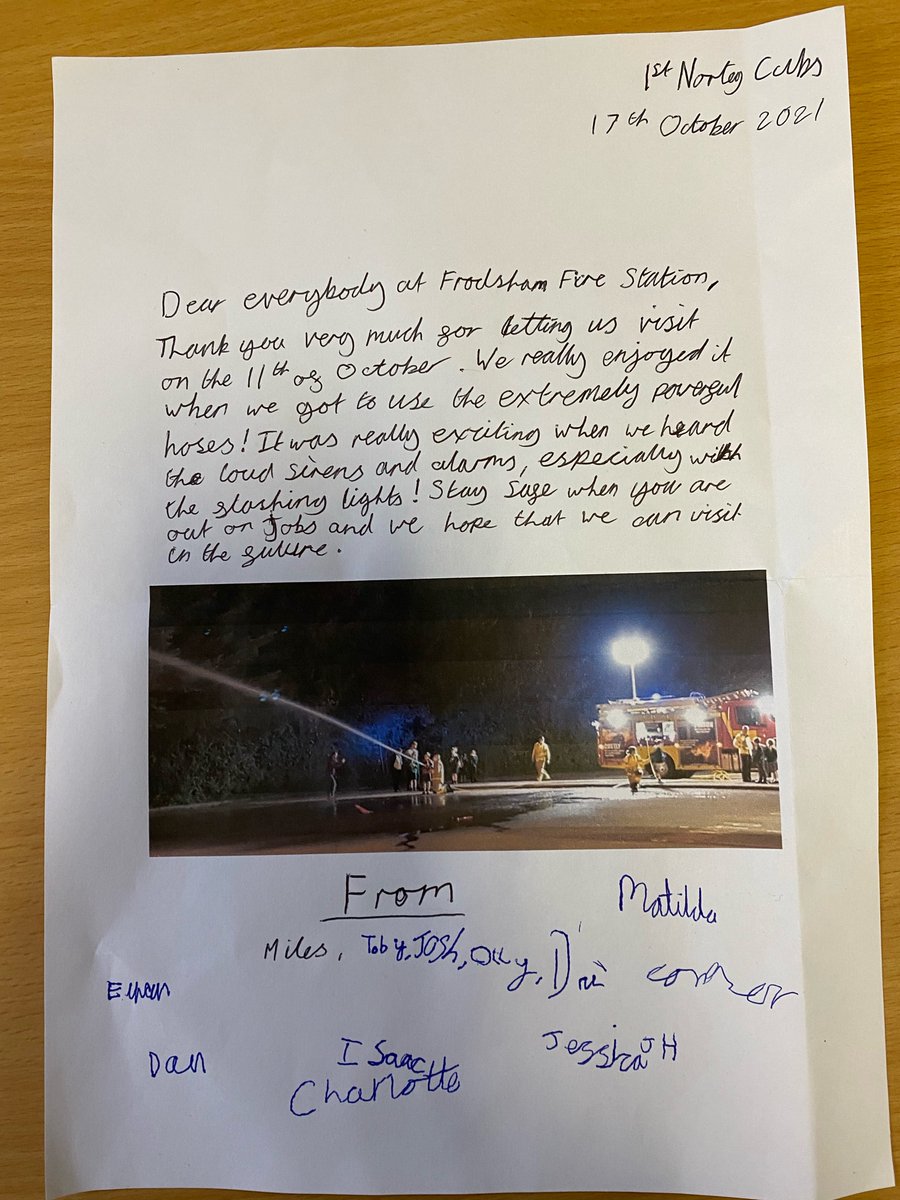 1st Norley Cubs
17th October 2021
Dear everybody at Frodsham Fire Station,
Thank you very much for letting us visit
on the 11th of October. We really enjoyed it
when we got to use the extremely powerful
hoses! It was really exciting when we heard
the loud sirens and alarms, especially with
the flashing lights! Stay safe when you are
out on Jobs and we hope that we can visit
in the future.
From
Matilda
Miles, Toby, JOSH, Olly,
connor
Dan
ISaac
Jessica JH
Charlotte